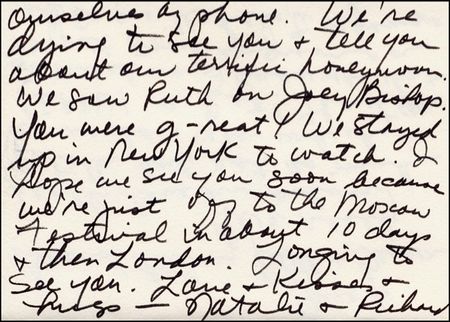 ourselves by phone. We're
dying to see you & tell you
about our terrific honeymoon.
We saw Ruth on Joey Bishop.
You were g-reat! We stayed
up in New York to watch. I
hope we see you soon because
we're just to the Moscow
Festival in about 10 days
& then London. Longing to
see you. Love & Kisses &
hugs — Natalie & Richard